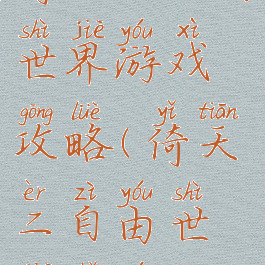 shì jiè yóu xì
世界游戏
gōng lüè yǐ tiān
攻略(倚天
èr zì yóu shì
二自由世